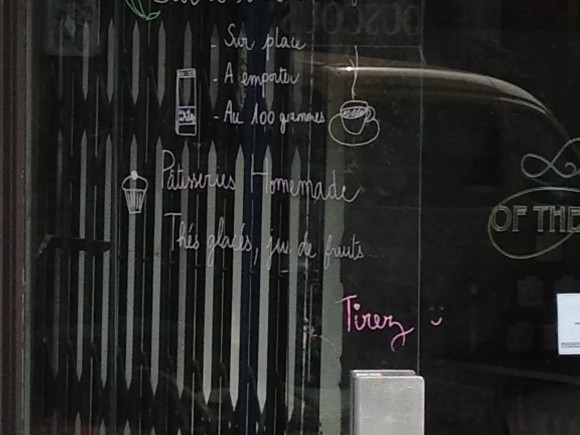 - Sur place
- A emporter
- Au 100 grammes
Pâtisseries Homemade
Thés glacés, jus de fruits...
Tirez
OF THE